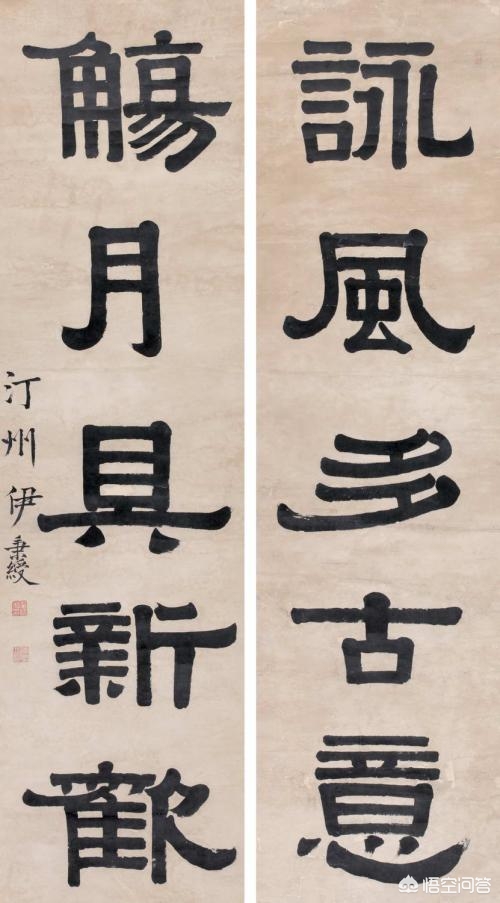 詠風多古意
觴月具新歡
汀州伊秉綬
悟空问答